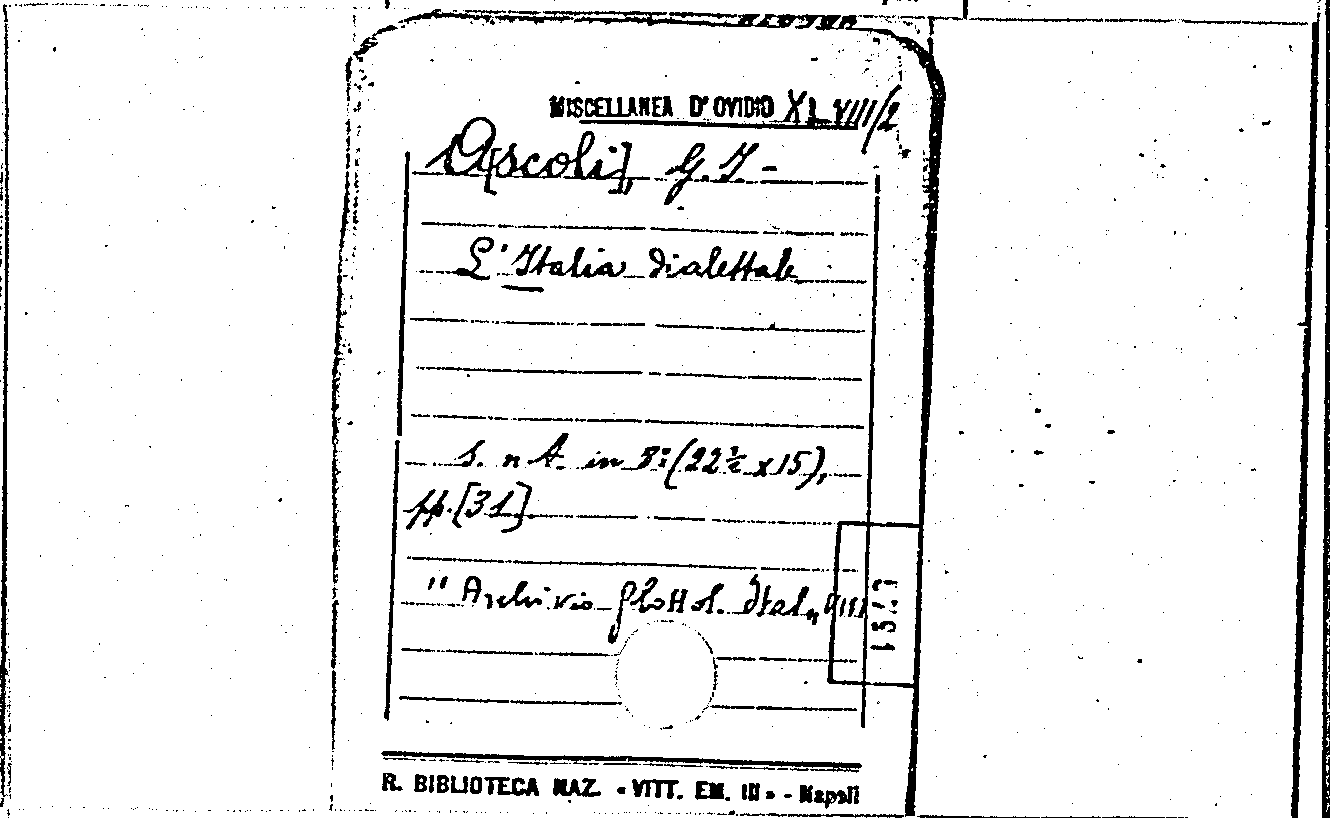 MISCELLANEA D'OVIDIO XLVIII/2
A[scoli], G. I. -
L'Italia dialettale
s. n. t. in 8º (22½ x 15),
pp. [31].
"Archivio glottol. Ital." VIII
R. BIBLIOTECA NAZ. «VITT. EM. III» - Napoli